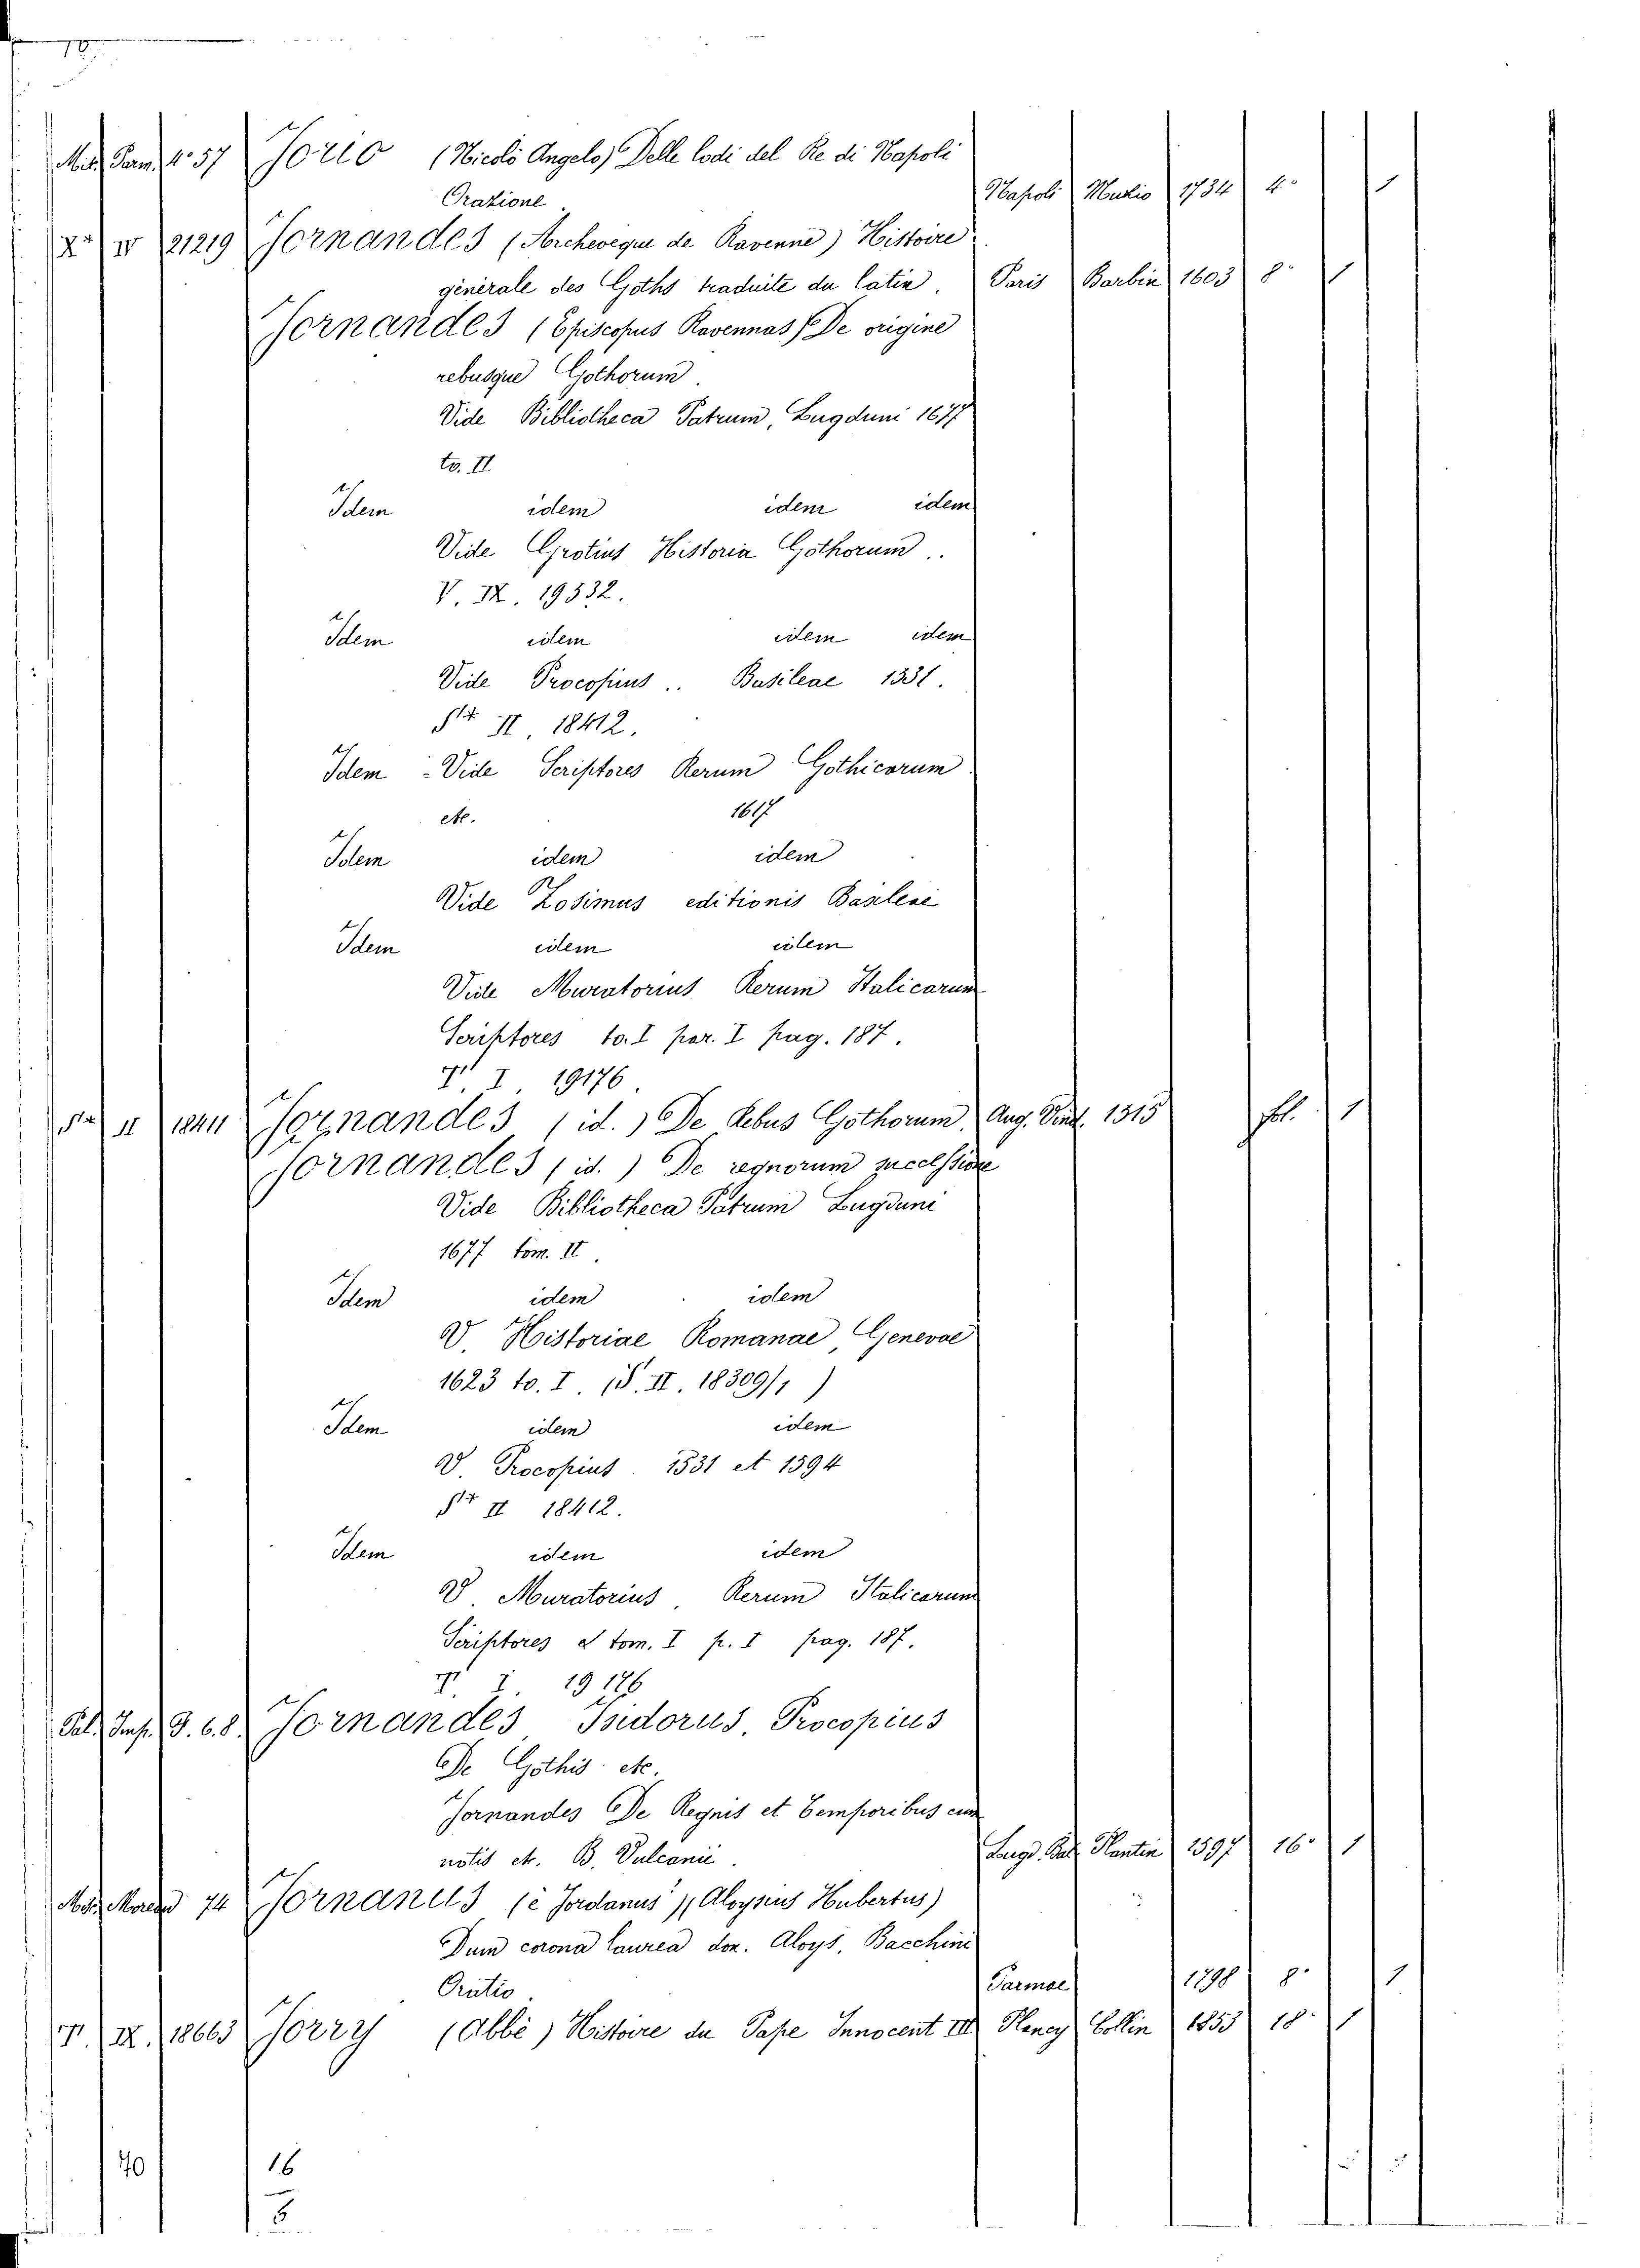 Mis. Parm. 4º 57 Jorio (Nicolò Angelo) Delle lodi del Re di Napoli
Orazione Napoli Mutio 1734 4º 1
IV 21219 Jornandes (Archevêque de Ravenne) Histoire
générale des Goths traduite du latin. Paris Barbin 1603 8º 1
Jornandes (Episcopus Ravennas) De origine
rebusque Gothorum.
Vide Bibliotheca Patrum, Lugduni 1677
to. II
Idem idem idem idem
Vide Grotius Historia Gothorum..
V. IX. 19532.
Idem idem idem idem
Vide Procopius.. Basileae 1531.
II. 18412.
Idem - Vide Scriptores Rerum Gothicorum
etc. 1617
Idem idem idem
Vide Zosimus editionis Basileae
Idem idem idem
Vide Muratorius Rerum Italicarum
Scriptores to. I par. I pag. 187.
T. I. 19176.
II 18411 Jornandes (id.) De Rebus Gothorum. Aug. Vind. 1515 fol. 1
Jornandes (id.) De regnorum successione
Vide Bibliotheca Patrum Lugduni
1677 tom. II.
Idem idem idem
V. Historiae Romanae, Genevae
1623 to. I. (S. II. 18309/1)
Idem idem idem
V. Procopius. 1531 et 1594
II 18412.
Idem idem idem
V. Muratorius, Rerum Italicarum
Scriptores tom. I p. I pag. 187.
T. I. 19176
Pal. Imp. G. 6.8. Jornandes, Isidorus, Procopius
De Gothis etc.
Jornandes De Regnis et Temporibus cum
notis etc. B. Vulcanii. Lugd. Bat. Plantin 1597 16º 1
74 Jornanels (è Jordanus) (Aloysius Hubertus)
Dum corona laurea don. Aloys. Bacchini
Oratio. Parmae 1798 8º 1
T. IX. 18663 Jorry (Abbé) Histoire du Pape Innocent III Plancy Collin 1853 18º 1
70 16
3